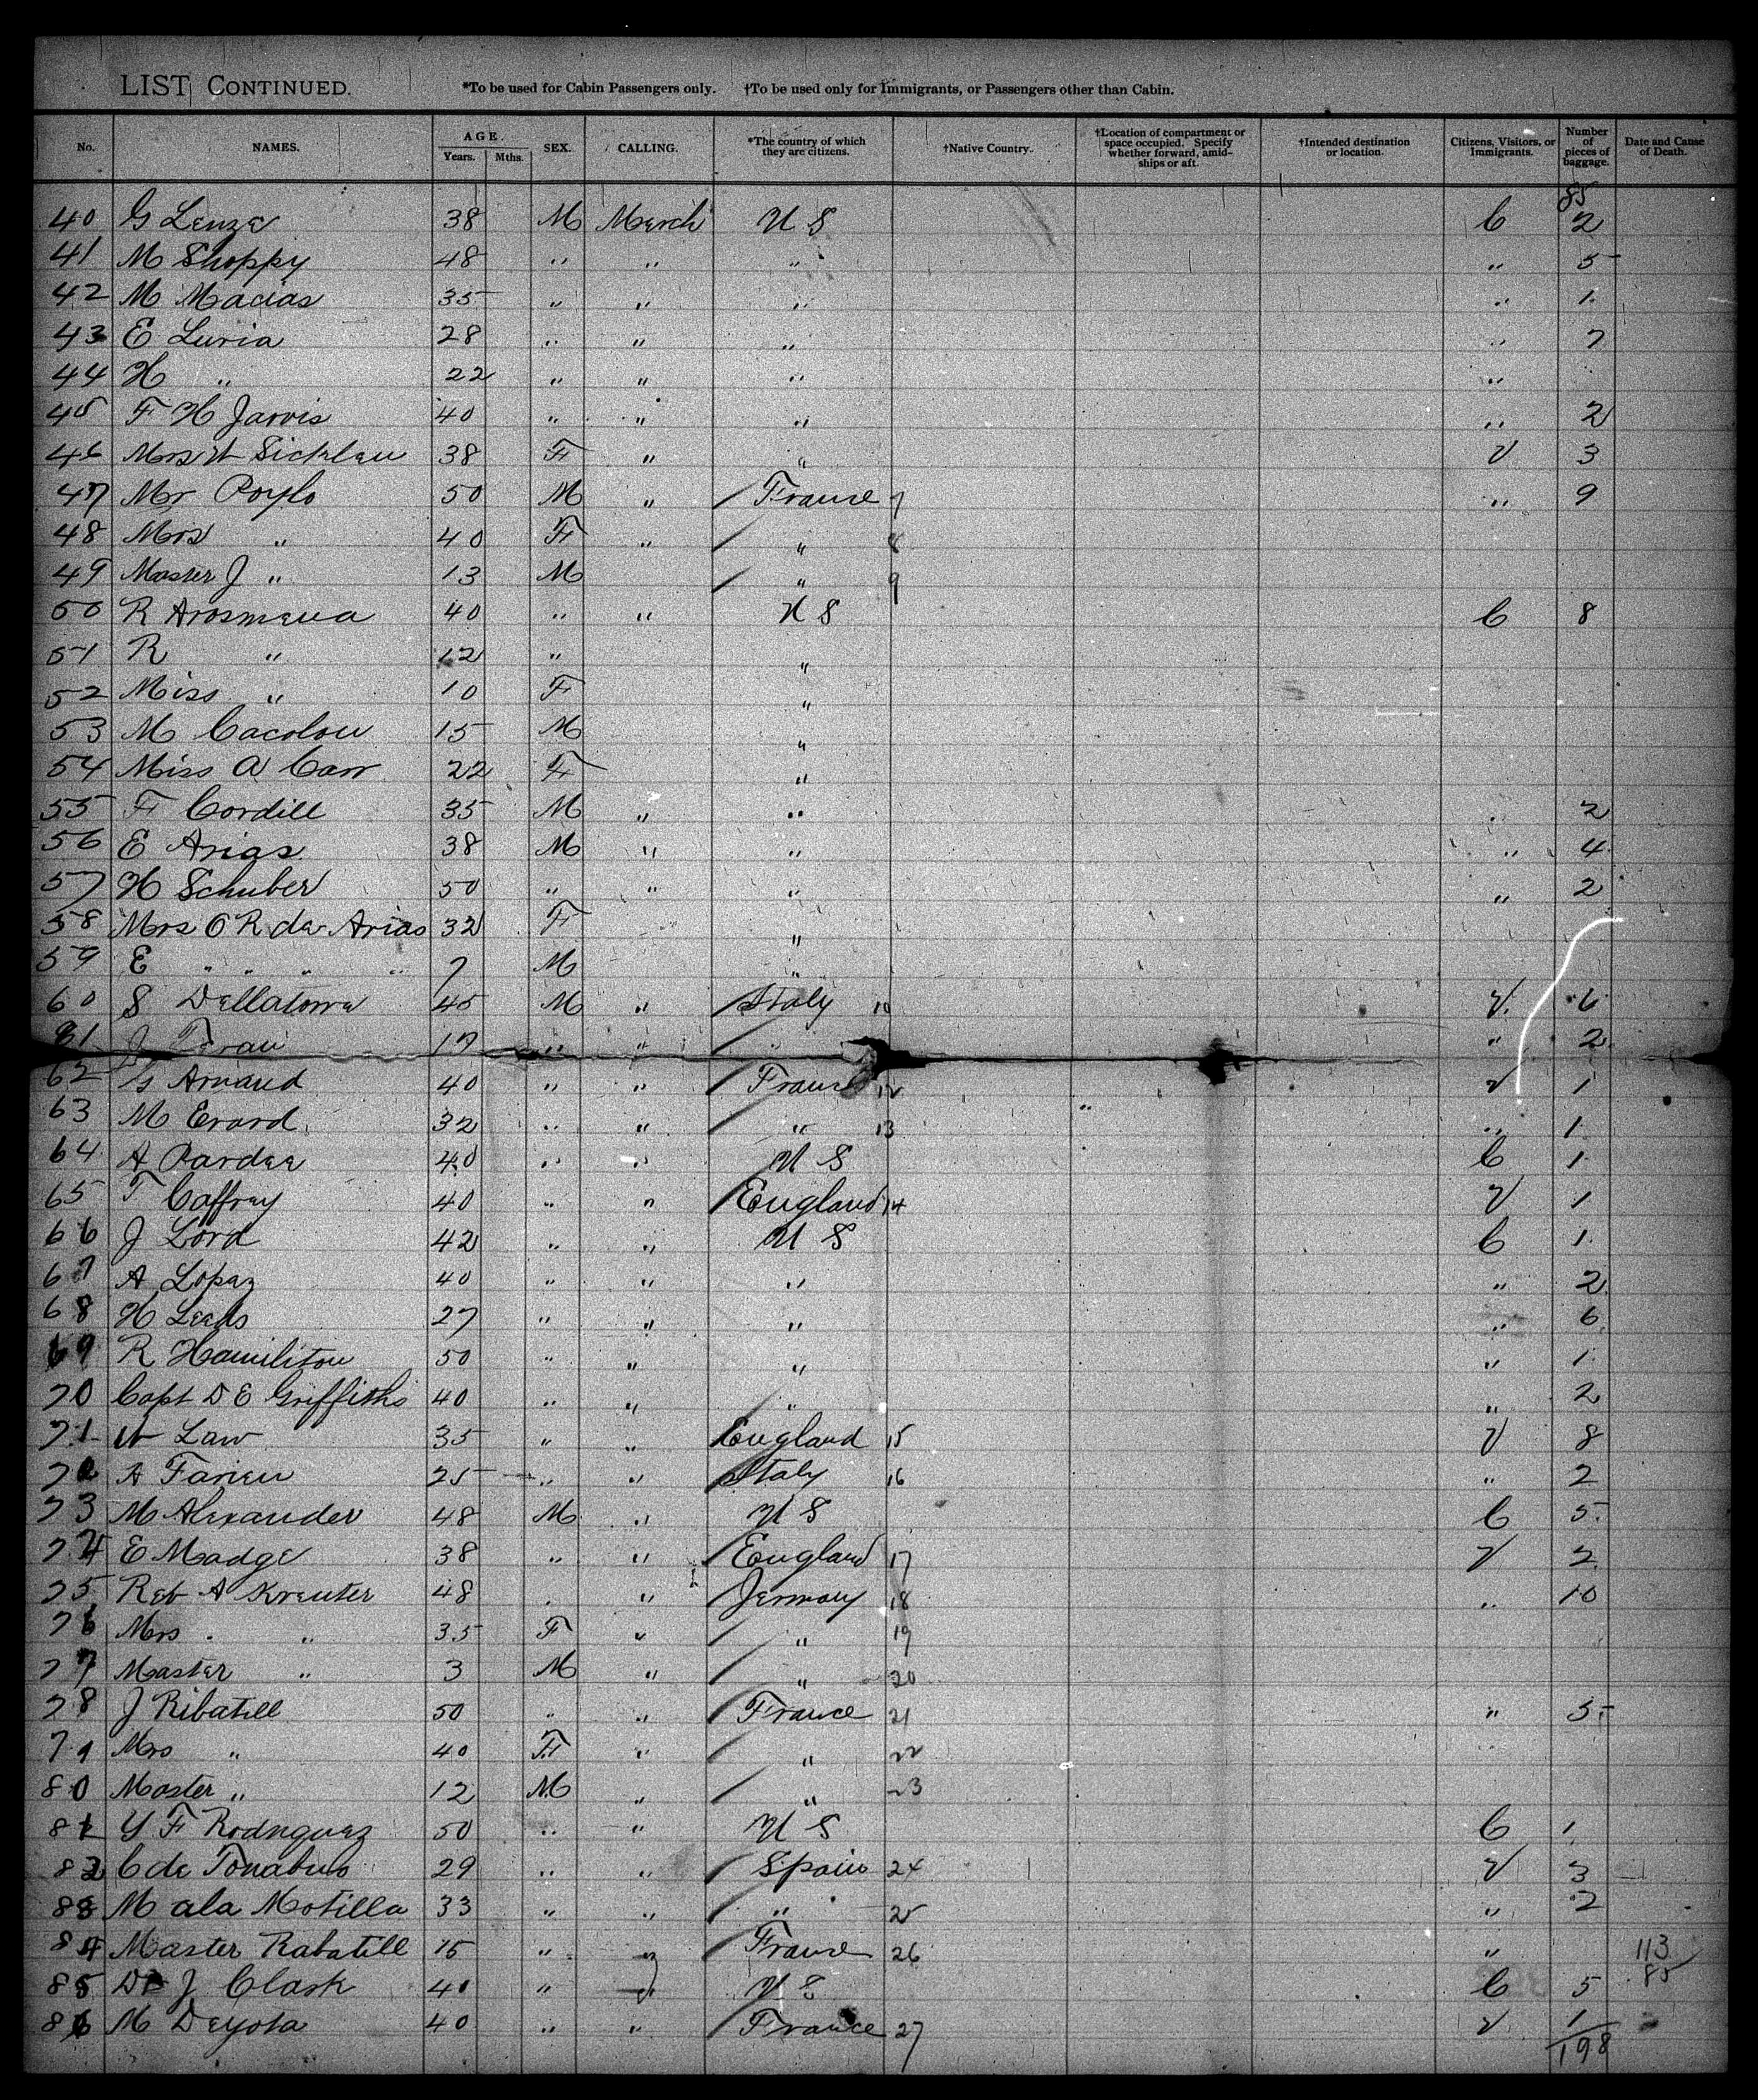 LIST CONTINUED. *To be used for Cabin Passengers only. †To be used only for Immigrants, or Passengers other than Cabin.
No. NAMES. AGE. Years. Mths. SEX. CALLING. *The country of which they are citizens. †Native Country. †Location of compartment or space occupied. Specify whether forward, amid-ships or aft. †Intended destination or location. Citizens, Visitors, or Immigrants. Number of pieces of baggage. Date and Cause of Death.
85
40 G Lenze 38 M Merch U S C 2
41 M Shoppy 48 " " " " 5
42 M Macias 35 " " " " 1
43 E Luria 28 " " " " 7
44 H " 22 " " " "
45 F H Jarvis 40 " " " " 2
46 Mrs W Sicklen 38 F " " V 3
47 Mr Poylo 50 M " France 7 " 9
48 Mrs " 40 F " " 8
49 Master J " 13 M " 9
50 R Arosmena 40 " " U S C 8
51 R " 12 " "
52 Miss " 10 F "
53 M Cacolou 15 M "
54 Miss A Carr 22 F "
55 F Cordill 35 M " " " 2
56 E Arias 38 M " " " 4
57 H Schuber 50 " " " " 2
58 Mrs O R de Arias 32 F "
59 E " " " " 7 M "
60 S Dellatorre 45 M " Italy 10 V. 6
61 J 17 " " " " 2
62 G Arnaud 40 " " France 12 V 1
63 M Erard 32 " " " 13 " 1
64 A Pardee 40 " " U S C 1
65 T Caffrey 40 " " England 14 V 1
66 J Lord 42 " " U S C 1
67 A Lopez 40 " " " " 2
68 H Leeds 27 " " " " 6
69 R Hamiliton 50 " " " " 1
70 Capt D E Griffiths 40 " " " " 2
71 W Law 35 " " England 15 V 8
72 A Farien 25 " " Italy 16 " 2
73 M Alexander 48 M " U S C 5
74 E Madge 38 " " England 17 V 2
75 Rev A Kreuter 48 " " Jermany 18 " 10
76 Mrs " 35 F " " 19
77 Master " 3 M " " 20
78 J Ribatell 50 " " France 21 " 5
79 Mrs " 40 F " " 22
80 Master " 12 M " " 23
81 Y F Rodriguez 50 " " U S C 1
82 C de 29 " " Spain 24 V 3
83 M ala Motilla 33 " " " 25 " 2
84 Master Rabatell 15 " " France 26 " 113
85 Dr J Clark 40 " " U S C 5 85
86 M Deyota 40 " " France 27 V 1
198